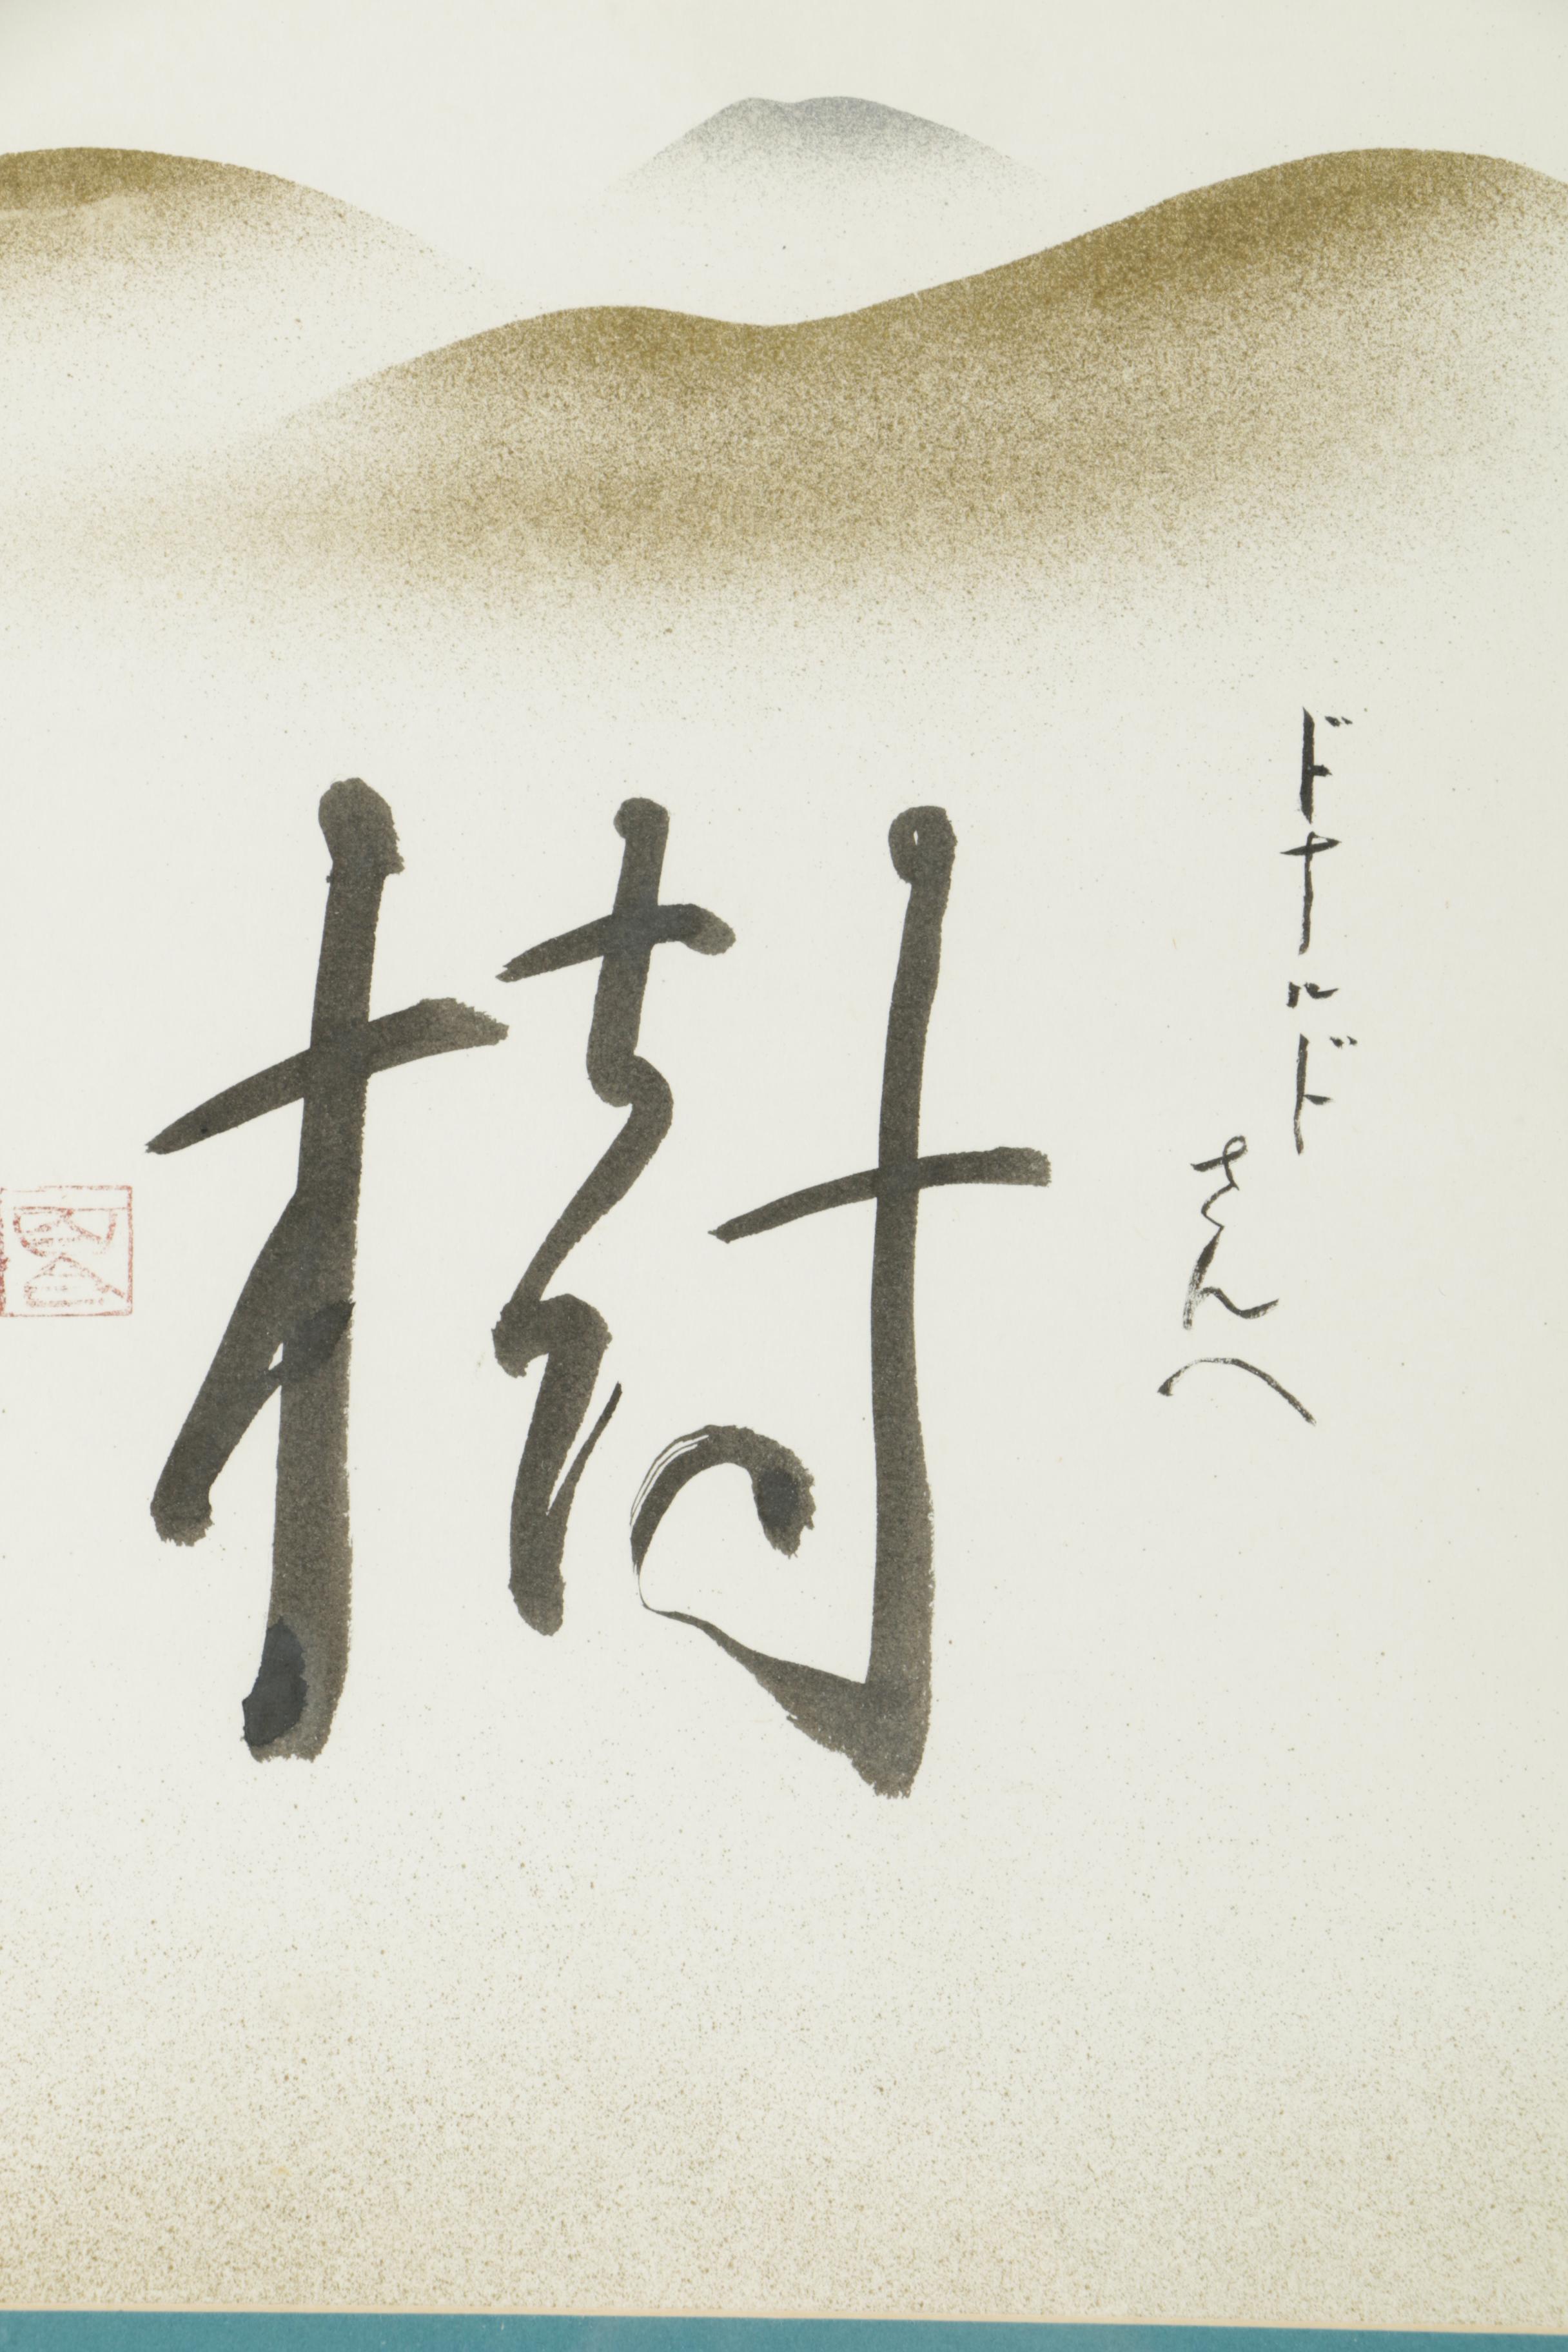 ドナルド
さんへ
樹